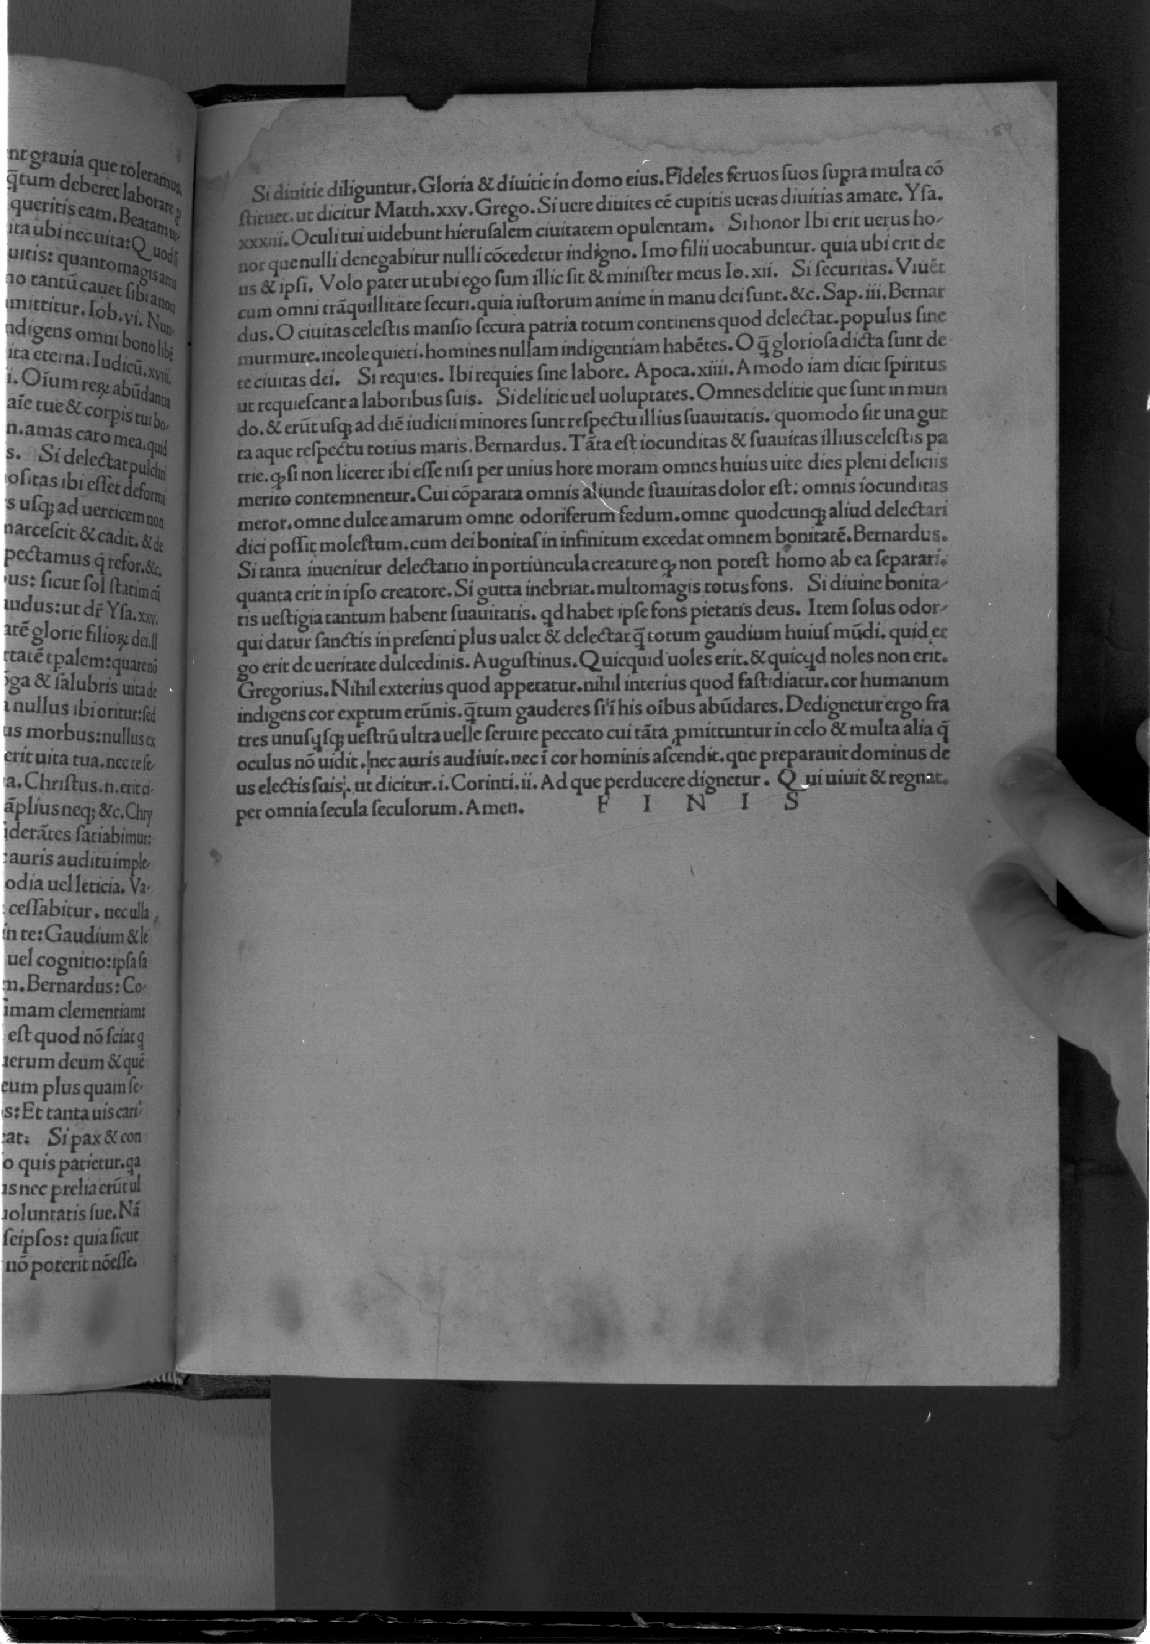 nt grauia que toleramus,
q̄tum deberet laborare
queritis eam. Beatam
ita ubi nec uita: Quod si
uitis: quanto magis
no tantū cauet sibi
amittitur. Iob. vi. Nun
ndigens omni bono
ita eterna. Iudicū. xviii.
i. Oīum abūdantia
aīe tue & corpis tui bo-
n. amas caro mea. quid
s. Si delectat pulchri
ositas ibi esset deformi
s usq; ad uerticem non
marcescit & cadit. & de
pectamus q̄ refor. &c.
us: sicut sol statim
audus: ut dr̄ Ysa. xxv.
atē glorie filioꝝ dei. Il
rtatē tpalem: quare nō
ōga & salubris uita de
nullus ibi oritur: sed
us morbus: nullus ex
erit uita tua. nec te se-
a. Christus. n. erit ci-
āplius neq; &c. Chry
iderātes satiabimur:
auris auditu imple-
odia uel leticia. Va-
cessabitur. nec ulla
in te: Gaudium & le
uel cognitio: ipsa sa
m. Bernardus: Co-
imam clementiam:
est quod nō sciat q
uerum deum & quē
eum plus quam se-
s: Et tanta uis cari-
at. Si pax & con
o quis patietur. qa
as nec prelia erūt ul
uoluntatis sue. Nā
seipsos: quia sicut
nō poterit nō esse.
Si diuitie diliguntur. Gloria & diuitie in domo eius. Fideles seruos suos supra multa cō
stituet. ut dicitur Matth. xxv. Grego. Si uere diuites cē cupitis ueras diuitias amate. Ysa.
xxxiii. Oculi tui uidebunt hierusalem ciuitatem opulentam. Si honor Ibi erit uerus ho-
nor que nulli denegabitur nulli cōcedetur indigno. Imo filii uocabuntur. quia ubi erit de
us & ipsi. Volo pater ut ubi ego sum illic sit & minister meus Io. xii. Si securitas. Viuēt
cum omni trāquillitate securi. quia iustorum anime in manu dei sunt. &c. Sap. iii. Bernar
dus. O ciuitas celestis mansio secura patria totum continens quod delectat. populus sine
murmure. incole quieti. homines nullam indigentiam habētes. O q̄ gloriosa dicta sunt de
te ciuitas dei. Si requies. Ibi requies sine labore. Apoca. xiiii. Amodo iam dicit spiritus
ut requiescant a laboribus suis. Si delitie uel uoluptates. Omnes delitie que sunt in mun
do. & erūt usq; ad diē iudicii minores sunt respectu illius suauitatis. quomodo sit una gut
ta aque respectu totius maris. Bernardus. Tāta est iocunditas & suauitas illius celestis pa
trie. ꝙ si non liceret ibi esse nisi per unius hore moram omnes huius uite dies pleni deliciis
merito contemnentur. Cui cōparata omnis aliunde suauitas dolor est: omnis iocunditas
meror. omne dulce amarum omne odoriferum fedum. omne quodcunq; aliud delectari
dici possit molestum. cum dei bonitas in infinitum excedat omnem bonitatē. Bernardus.
Si tanta inuenitur delectatio in portiuncula creature ꝙ non potest homo ab ea separari.
quanta erit in ipso creatore. Si gutta inebriat. multomagis totus fons. Si diuine bonita-
tis uestigia tantum habent suauitatis. qd habet ipse fons pietatis deus. Item solus odor-
qui datur sanctis in presenti plus ualet & delectat q̄ totum gaudium huius mūdi. quid er
go erit de ueritate dulcedinis. Augustinus. Quicquid uoles erit. & quicqd noles non erit.
Gregorius. Nihil exterius quod appetatur. nihil interius quod fastidiatur. cor humanum
indigens cor exptum erūnis. q̄tum gauderes si ī his oībus abūdares. Dedignetur ergo fra
tres unusqsq; uestrū ultra uelle seruire peccato cui tāta ꝓmittuntur in celo & multa alia q̄
oculus nō uidit. nec auris audiuit. nec ī cor hominis ascendit. que preparauit dominus de
us electis suis. ut dicitur. i. Corinti. ii. Ad que perducere dignetur. Qui uiuit & regnat.
per omnia secula seculorum. Amen. F I N I S